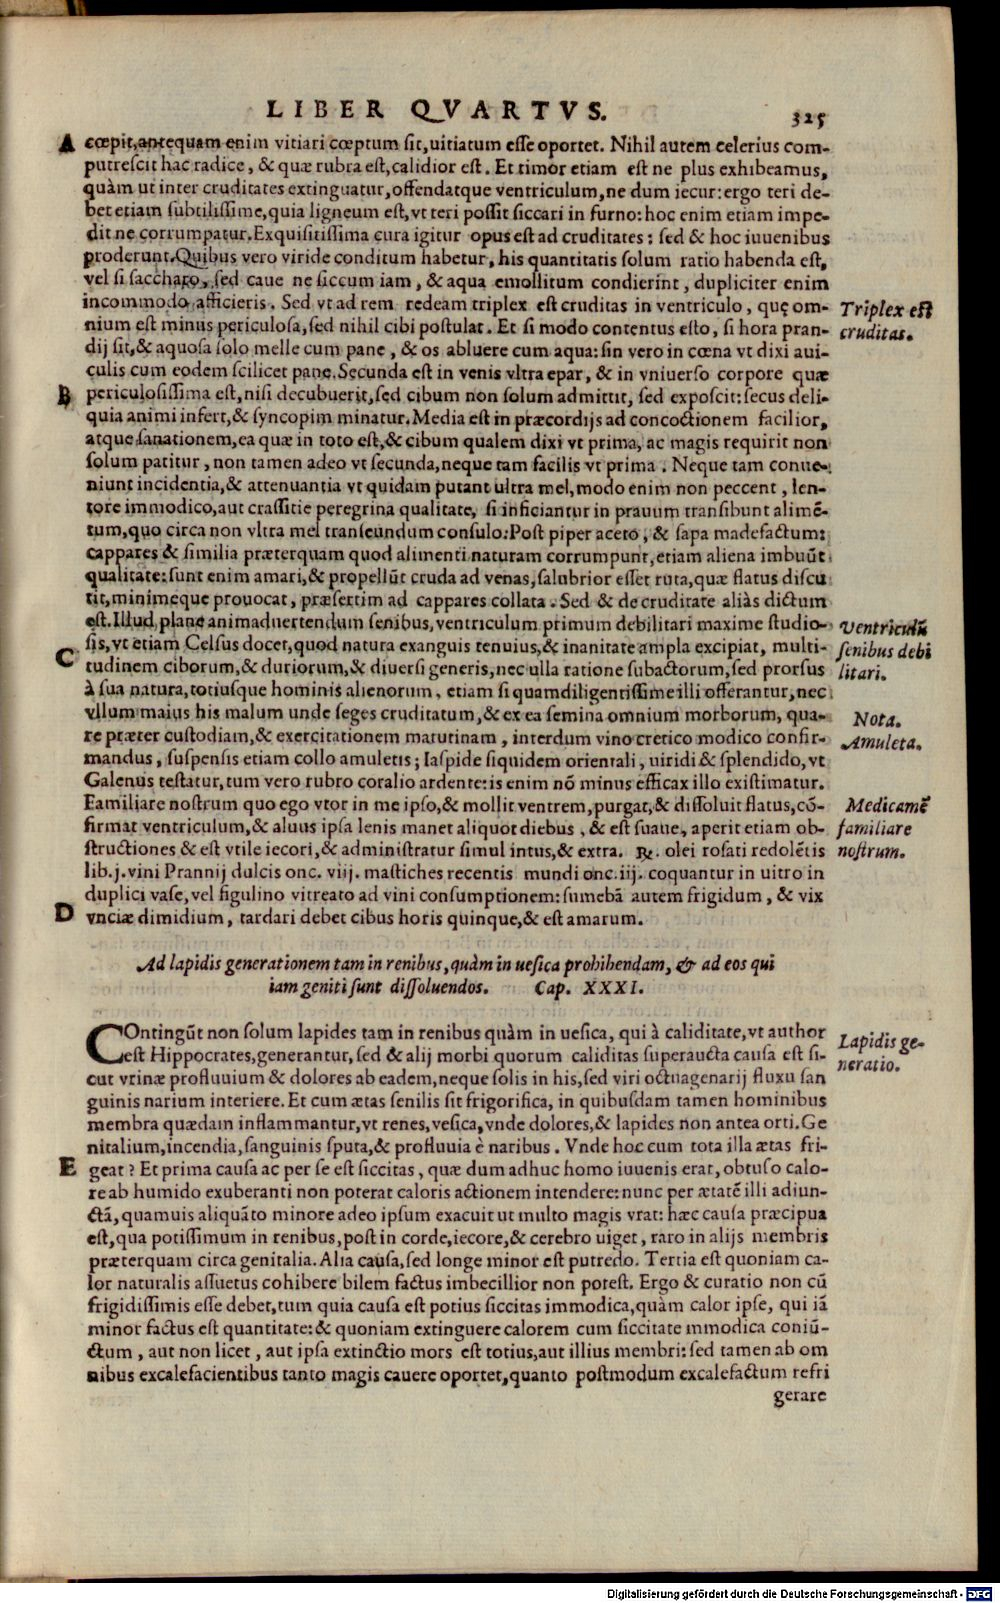 LIBER QVARTVS.
325
A cœpit, antequam enim vitiari cœptum sit, uitiatum esse oportet. Nihil autem celerius com-
putrescit hac radice, & quæ rubra est, calidior est. Et timor etiam est ne plus exhibeamus,
quàm ut inter cruditates extinguatur, offendatque ventriculum, ne dum iecur: ergo teri de-
bet etiam subtilissime, quia ligneum est, vt teri possit siccari in furno: hoc enim etiam impe-
dit ne corrumpatur. Exquisitissima cura igitur opus est ad cruditates: sed & hoc iuuenibus
proderunt. Quibus vero viride conditum habetur, his quantitatis solum ratio habenda est,
vel si saccharo, sed caue ne siccum iam, & aqua emollitum condierint, dupliciter enim
incommodo afficieris. Sed vt ad rem redeam triplex est cruditas in ventriculo, quę om-
Triplex est
nium est minus periculosa, sed nihil cibi postulat. Et si modo contentus esto, si hora pran-
cruditas.
dij sit, & aquosa solo melle cum pane, & os abluere cum aqua: sin vero in cœna vt dixi aui-
culis cum eodem scilicet pane. Secunda est in venis vltra epar, & in vniuerso corpore quæ
B periculosissima est, nisi decubuerit, sed cibum non solum admittit, sed exposcit: secus deli-
quia animi infert, & syncopim minatur. Media est in præcordijs ad concoctionem facilior,
atque sanationem, ea quæ in toto est, & cibum qualem dixi vt prima, ac magis requirit non
solum patitur, non tamen adeo vt secunda, neque tam facilis vt prima. Neque tam conue-
niunt incidentia, & attenuantia vt quidam putant ultra mel, modo enim non peccent, len-
tore immodico, aut crassitie peregrina qualitate, si inficiantur in prauum transibunt alimē-
tum, quo circa non vltra mel transeundum consulo: Post piper aceto, & sapa madefactum:
cappares & similia præterquam quod alimenti naturam corrumpunt, etiam aliena imbuūt
qualitate: sunt enim amari, & propellūt cruda ad venas, salubrior esset ruta, quæ flatus discu
tit, minimeque prouocat, præsertim ad cappares collata. Sed & de cruditate aliàs dictum
est. Illud plane animaduertendum senibus, ventriculum primum debilitari maxime studio-
Ventriculū
C sis, vt etiam Celsus docet, quod natura exanguis tenuius, & inanitate ampla excipiat, multi-
senibus debi
tudinem ciborum, & duriorum, & diuersi generis, nec ulla ratione subactorum, sed prorsus
litari.
à sua natura, totiusque hominis alienorum, etiam si quamdiligentissime illi offerantur, nec
vllum maius his malum unde seges cruditatum, & ex ea semina omnium morborum, qua-
Nota.
re præter custodiam, & exercitationem matutinam, interdum vino cretico modico confir-
Amuleta.
mandus, suspensis etiam collo amuletis; Iaspide siquidem orientali, uiridi & splendido, vt
Galenus testatur, tum vero rubro coralio ardente: is enim nō minus efficax illo existimatur.
Familiare nostrum quo ego vtor in me ipso, & mollit ventrem, purgat, & dissoluit flatus, cō-
Medicamē
firmat ventriculum, & aluus ipsa lenis manet aliquot diebus, & est suaue, aperit etiam ob-
familiare
structiones & est vtile iecori, & administratur simul intus, & extra. ℞. olei rosati redolētis
nostrum.
lib. j. vini Prannij dulcis onc. viij. mastiches recentis mundi onc. iij. coquantur in uitro in
duplici vase, vel figulino vitreato ad vini consumptionem: sumebā autem frigidum, & vix
D vnciæ dimidium, tardari debet cibus horis quinque, & est amarum.
Ad lapidis generationem tam in renibus, quàm in uesica prohibendam, & ad eos qui
iam geniti sunt dissoluendos. Cap. XXXI.
COntingūt non solum lapides tam in renibus quàm in uesica, qui à caliditate, vt author
Lapidis ge-
est Hippocrates, generantur, sed & alij morbi quorum caliditas superaucta causa est si-
neratio.
cut vrinæ profluuium & dolores ab eadem, neque solis in his, sed viri octuagenarij fluxu san
guinis narium interiere. Et cum ætas senilis sit frigorifica, in quibusdam tamen hominibus
membra quædam inflammantur, vt renes, vesica, vnde dolores, & lapides non antea orti. Ge
nitalium, incendia, sanguinis sputa, & profluuia è naribus. Vnde hoc cum tota illa ætas fri-
E geat? Et prima causa ac per se est siccitas, quæ dum adhuc homo iuuenis erat, obtuso calo-
re ab humido exuberanti non poterat caloris actionem intendere: nunc per ætatē illi adiun-
ctā, quamuis aliquāto minore adeo ipsum exacuit ut multo magis vrat: hæc causa præcipua
est, qua potissimum in renibus, post in corde, iecore, & cerebro uiget, raro in alijs membris
præterquam circa genitalia. Alia causa, sed longe minor est putredo. Tertia est quoniam ca-
lor naturalis assuetus cohibere bilem factus imbecillior non potest. Ergo & curatio non cū
frigidissimis esse debet, tum quia causa est potius siccitas immodica, quàm calor ipse, qui iā
minor factus est quantitate: & quoniam extinguere calorem cum siccitate immodica coniū-
ctum, aut non licet, aut ipsa extinctio mors est totius, aut illius membri: sed tamen ab om
nibus excalefacientibus tanto magis cauere oportet, quanto postmodum excalefactum refri
gerare
Digitalisierung gefördert durch die Deutsche Forschungsgemeinschaft - DFG